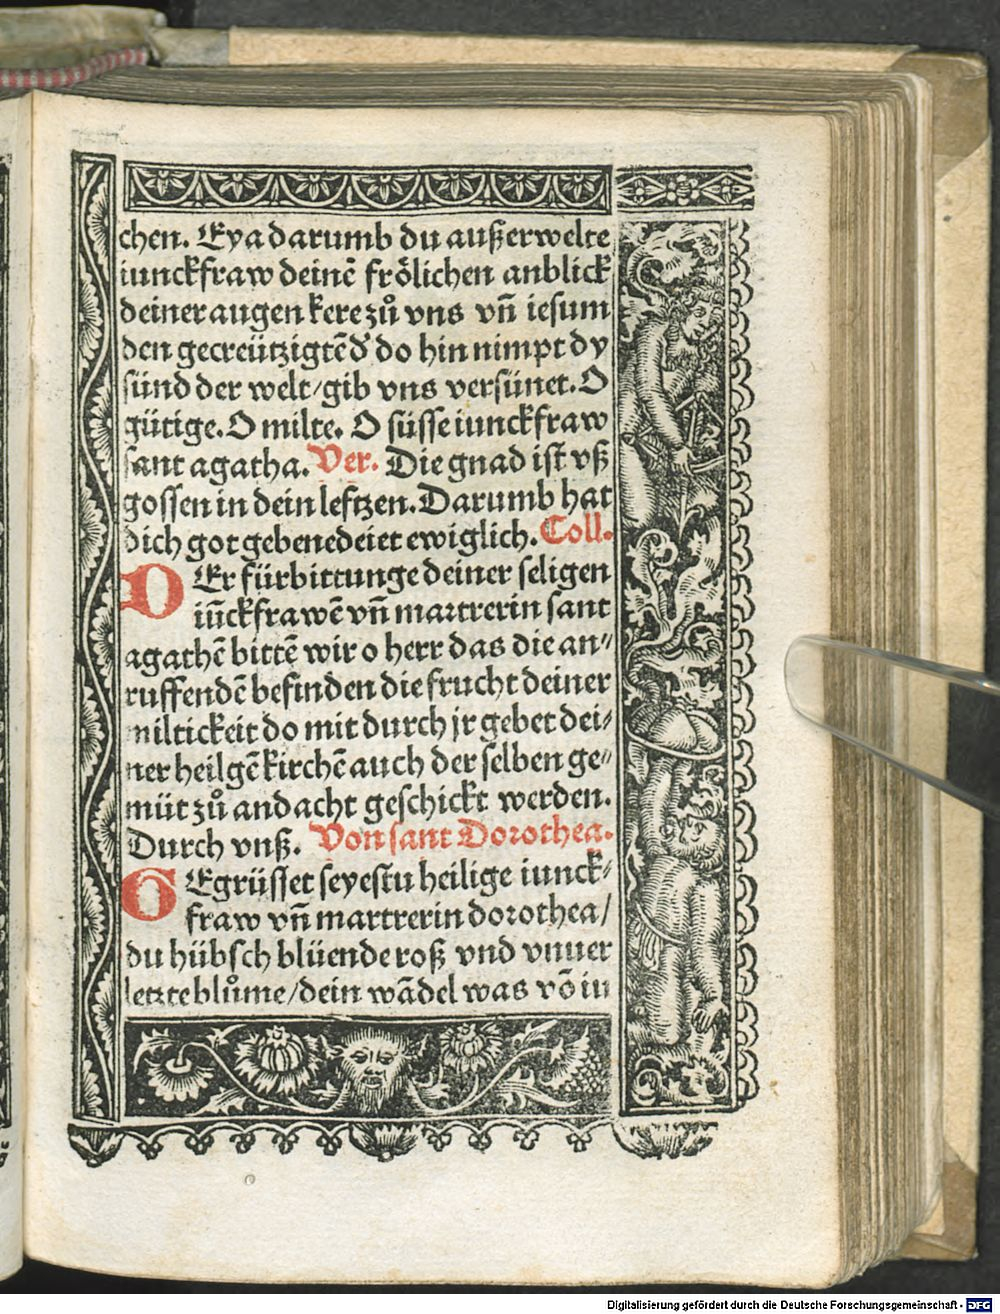 chen. Eya darumb du außerwelte
iunckfraw deinē frölichen anblick
deiner augen kere zuͦ vns vn̄ iesum
den gecreützigtē d' do hin nimpt dy
sünd der welt/gib vns versünet. O
gütige. O milte. O süsse iunckfraw
sant agatha. Ver. Die gnad ist vß
gossen in dein leftzen. Darumb hat
dich got gebenedeiet ewiglich. Coll.
DEr fürbittunge deiner seligen
iūckfrawē vn̄ martrerin sant
agathē bittē wir o herr das die an⸗
ruffendē befinden die frucht deiner
miltickeit do mit durch jr gebet dei⸗
ner heilgē kirchē auch der selben ge⸗
müt zuͦ andacht geschickt werden.
Durch vnß. Von sant Dorothea.
GEgrüsset seyestu heilige iunck⸗
fraw vn̄ martrerin dorothea/
du hübsch blüende roß vnd vnuer
letzte bluͦme/dein wādel was vō iu
Digitalisierung gefördert durch die Deutsche Forschungsgemeinschaft - DFG